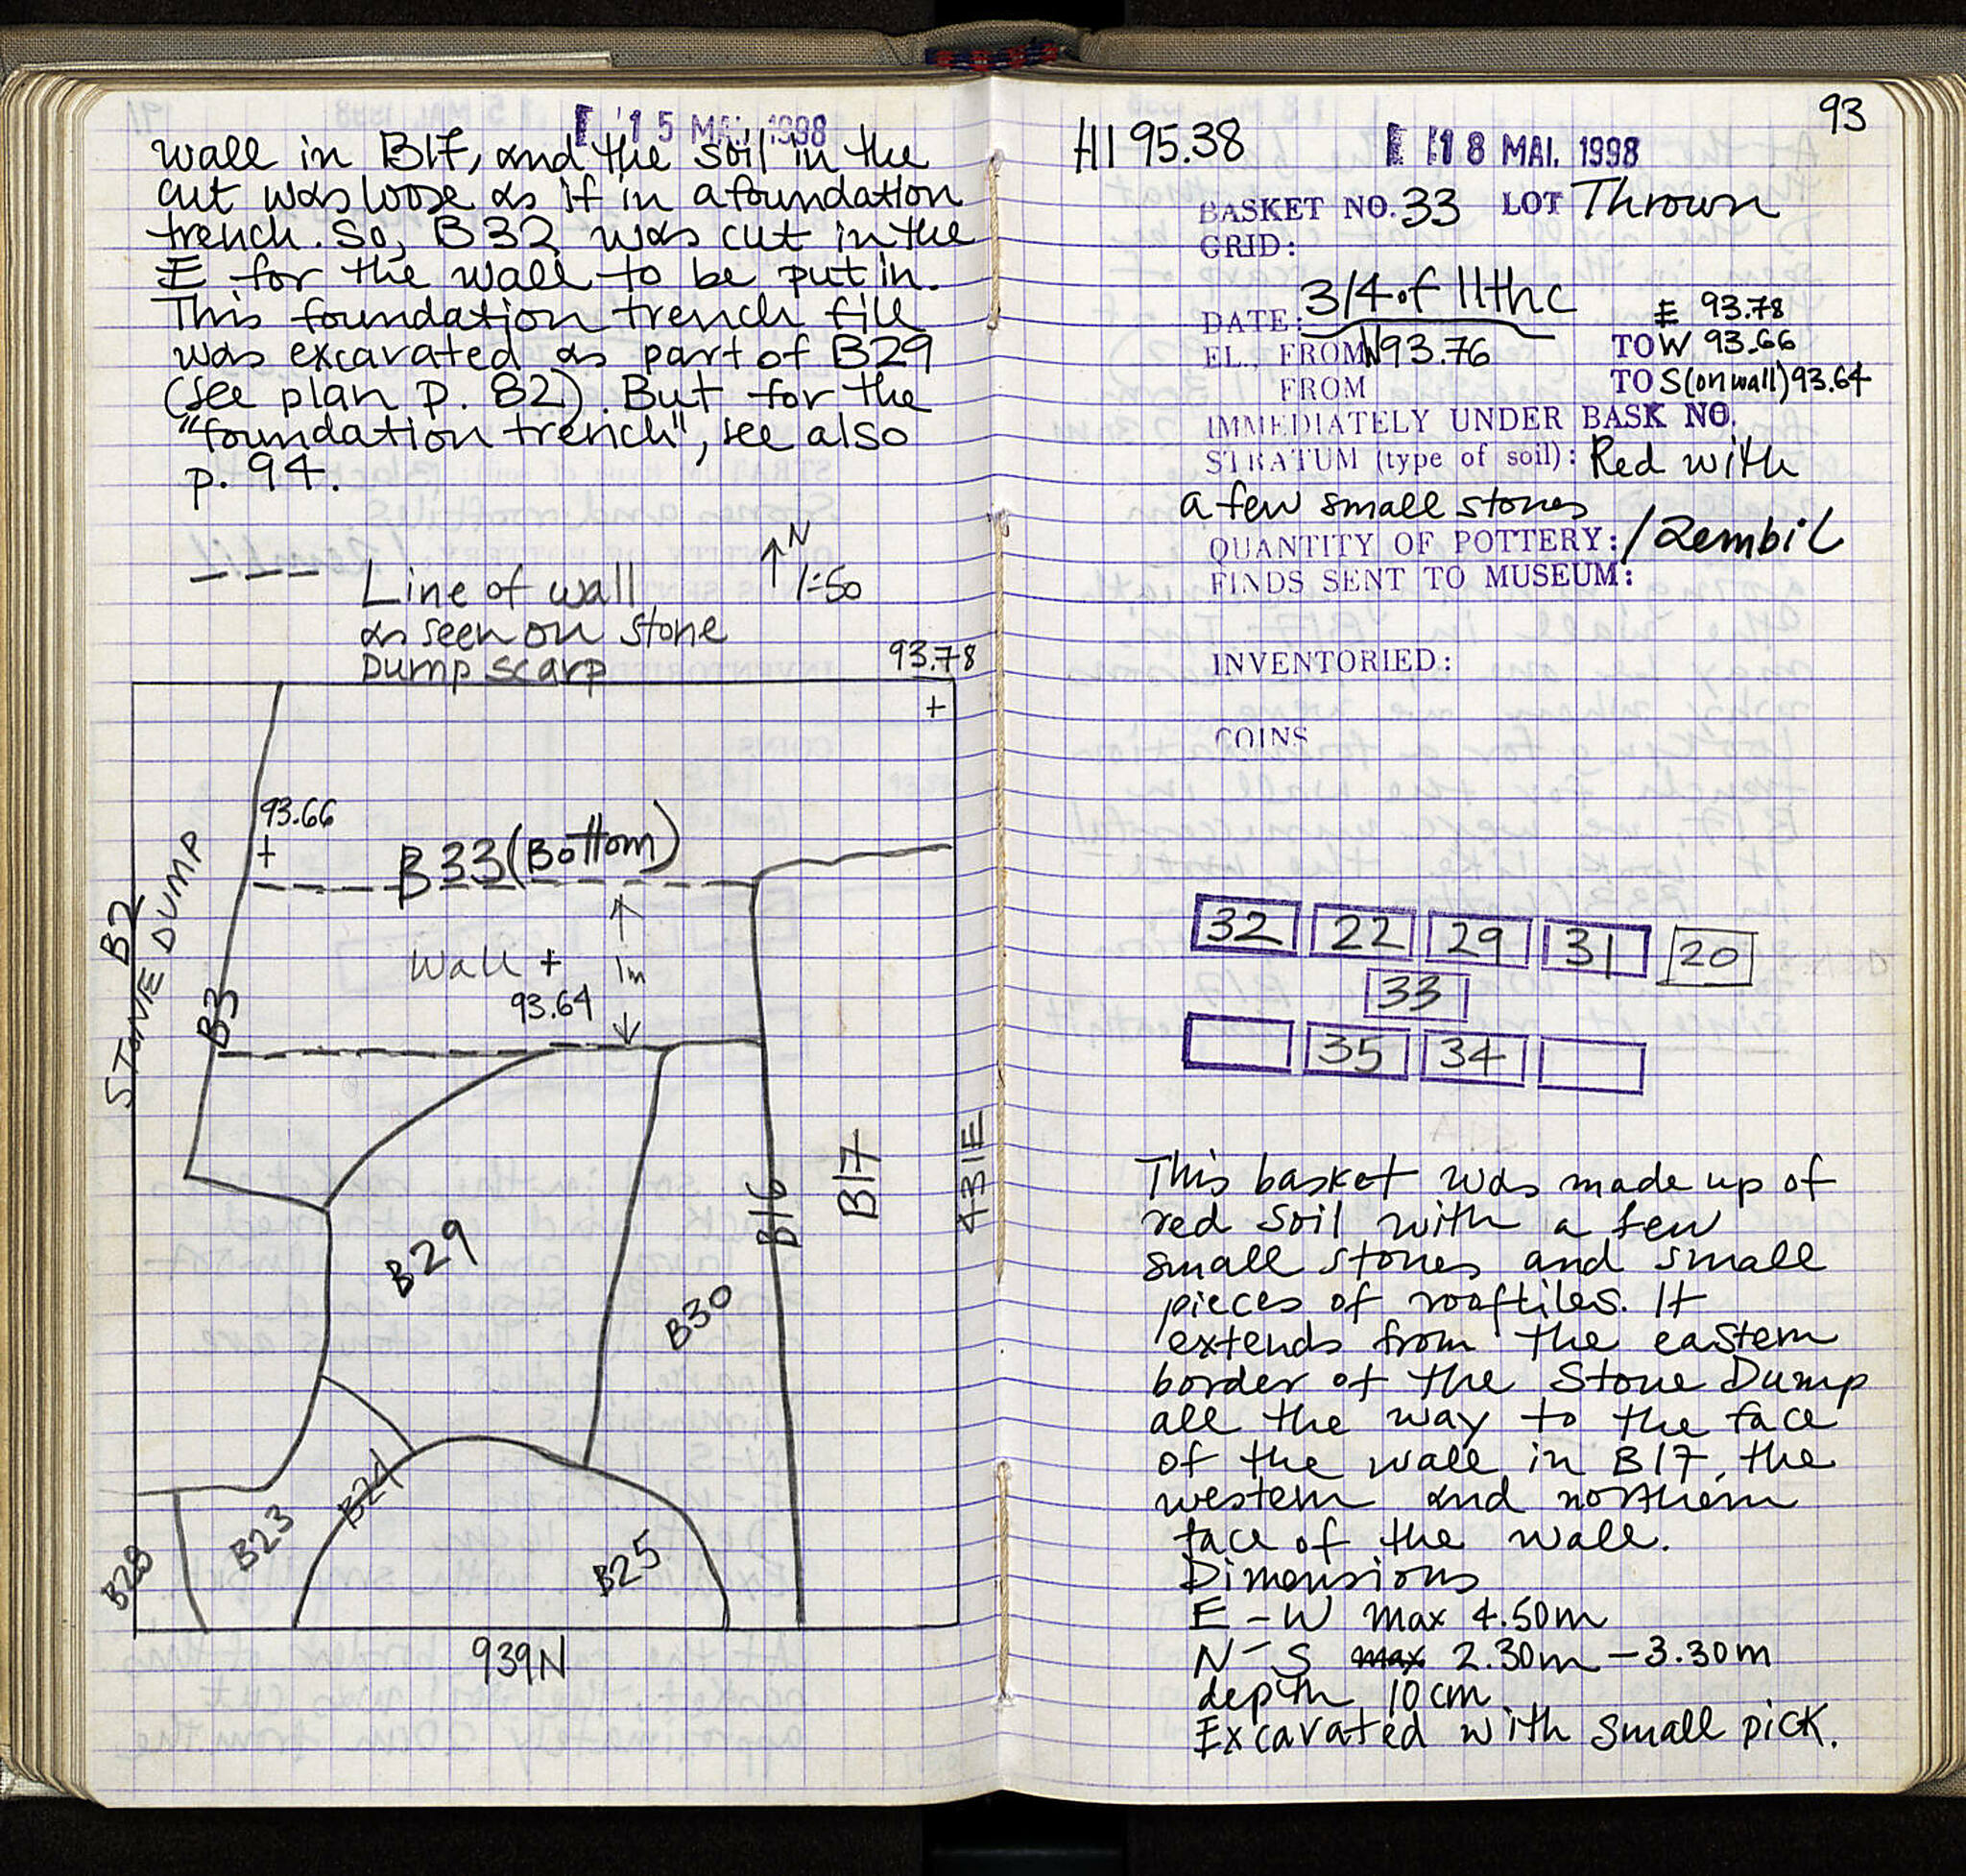 15 MAI. 1998
wall in B17, and the soil in the
cut was loose as if in a foundation
trench. So, B32 was cut in the
E for the wall to be put in.
This foundation trench fill
was excavated as part of B29
(see plan p. 82). But for the
"foundation trench", see also
p. 94.
N
1:50
Line of wall
as seen on Stone
Dump scarp
93.78
+
93.66
+
B33 (Bottom)
B2
STONE DUMP
B3
Wall +
93.64
1m
B29
B30
B16
B17
431E
B21
B23
B28
B25
939N
93
HI 95.38
18 MAI. 1998
BASKET NO. 33 LOT Thrown
GRID:
DATE: 3/4 of 11th c
EL., FROM N 93.76
E 93.78
TO W 93.66
FROM
TO S (on wall) 93.64
IMMEDIATELY UNDER BASK NO.
STRATUM (type of soil): Red with
a few small stones
QUANTITY OF POTTERY: 1 Zembil
FINDS SENT TO MUSEUM:
INVENTORIED:
COINS
32 22 29 31 20
33
35 34
This basket was made up of
red soil with a few
small stones and small
pieces of rooftiles. It
extends from the eastern
border of the Stone Dump
all the way to the face
of the wall in B17, the
western and northern
face of the wall.
Dimensions
E-W max 4.50m
N-S max 2.30m-3.30m
depth 10cm
Excavated with small pick.